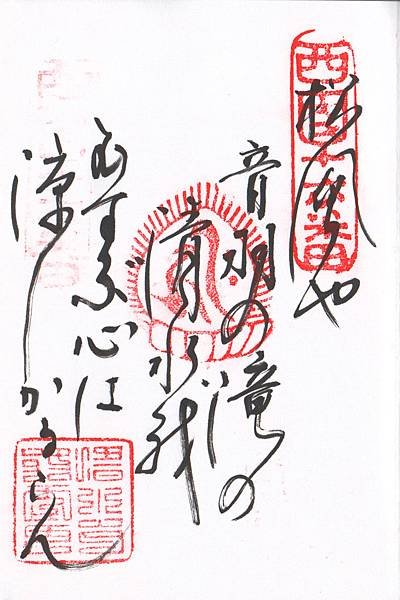 西国十六番
松風や
音羽の滝の
清水を
むすぶ心は
涼しかるらん